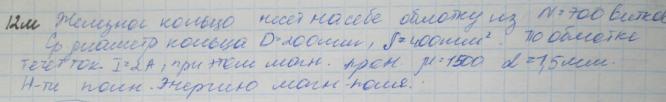 12м Железное кольцо несет на себе обмотку из N=700 витков
Ср диаметр кольца D=200мм, S=400мм². По обмотке
течет ток I=2А, при этом магн. прон μ=1500 d=1,5мм.
Н-ти полн. энергию магн. поля.